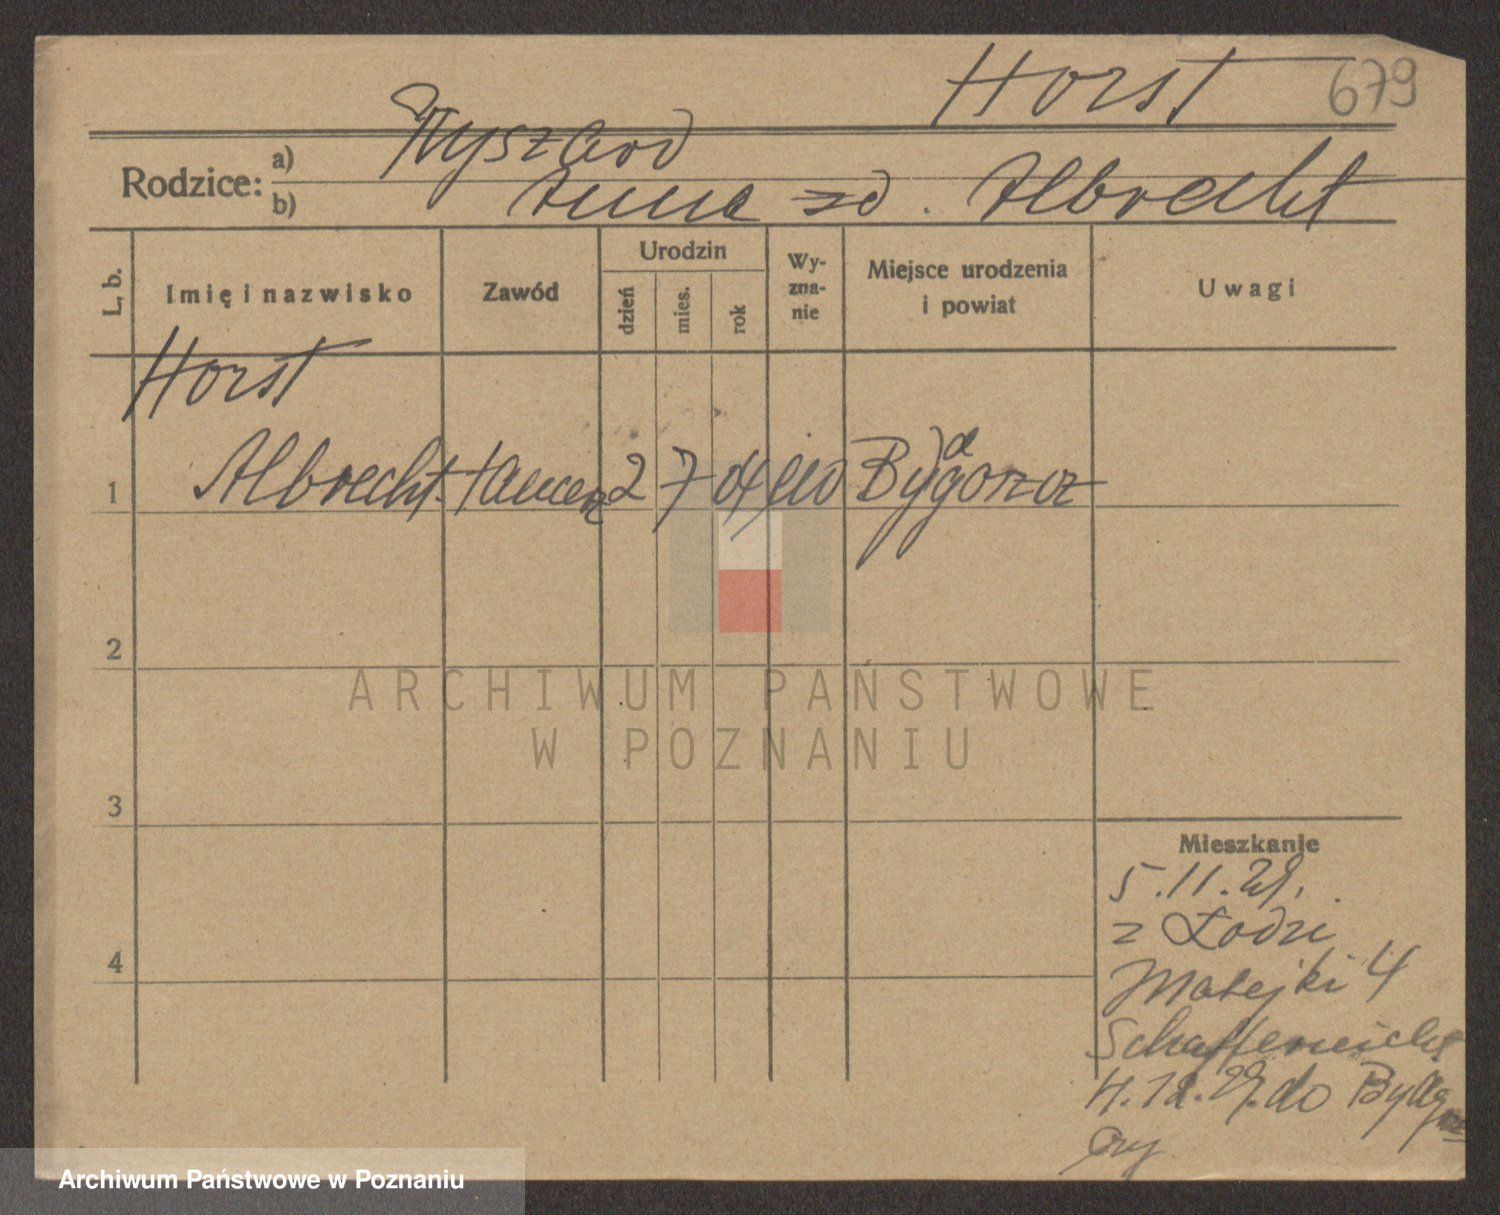 Horst 679
Rodzice: a) Ryszard
b) Anna zd. Albrecht
L. b.
Imię i nazwisko
Zawód
Urodzin
dzień
mies.
rok
Wy-
zna-
nie
Miejsce urodzenia
i powiat
Uwagi
Horst
1 Albrecht 2 7 04 Bydgoszcz
2
3
4
Mieszkanie
5.11.29.
z Łodzi
Matejki 4
4.12.29. do
ARCHIWUM PAŃSTWOWE
W POZNANIU
Archiwum Państwowe w Poznaniu